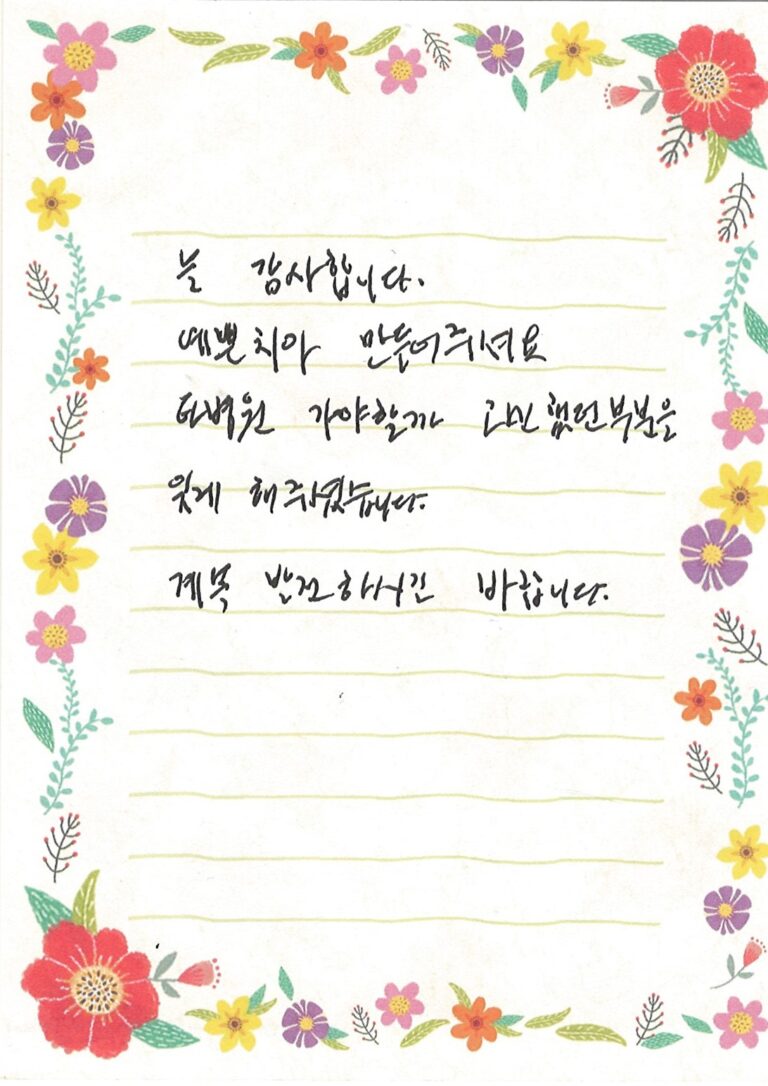 늘 감사합니다.
예쁜치아 만들어주셔요
타병원 가야할까 고민했던부분을
잊게 해주셨습니다.
계속 발전하시긴 바랍니다.